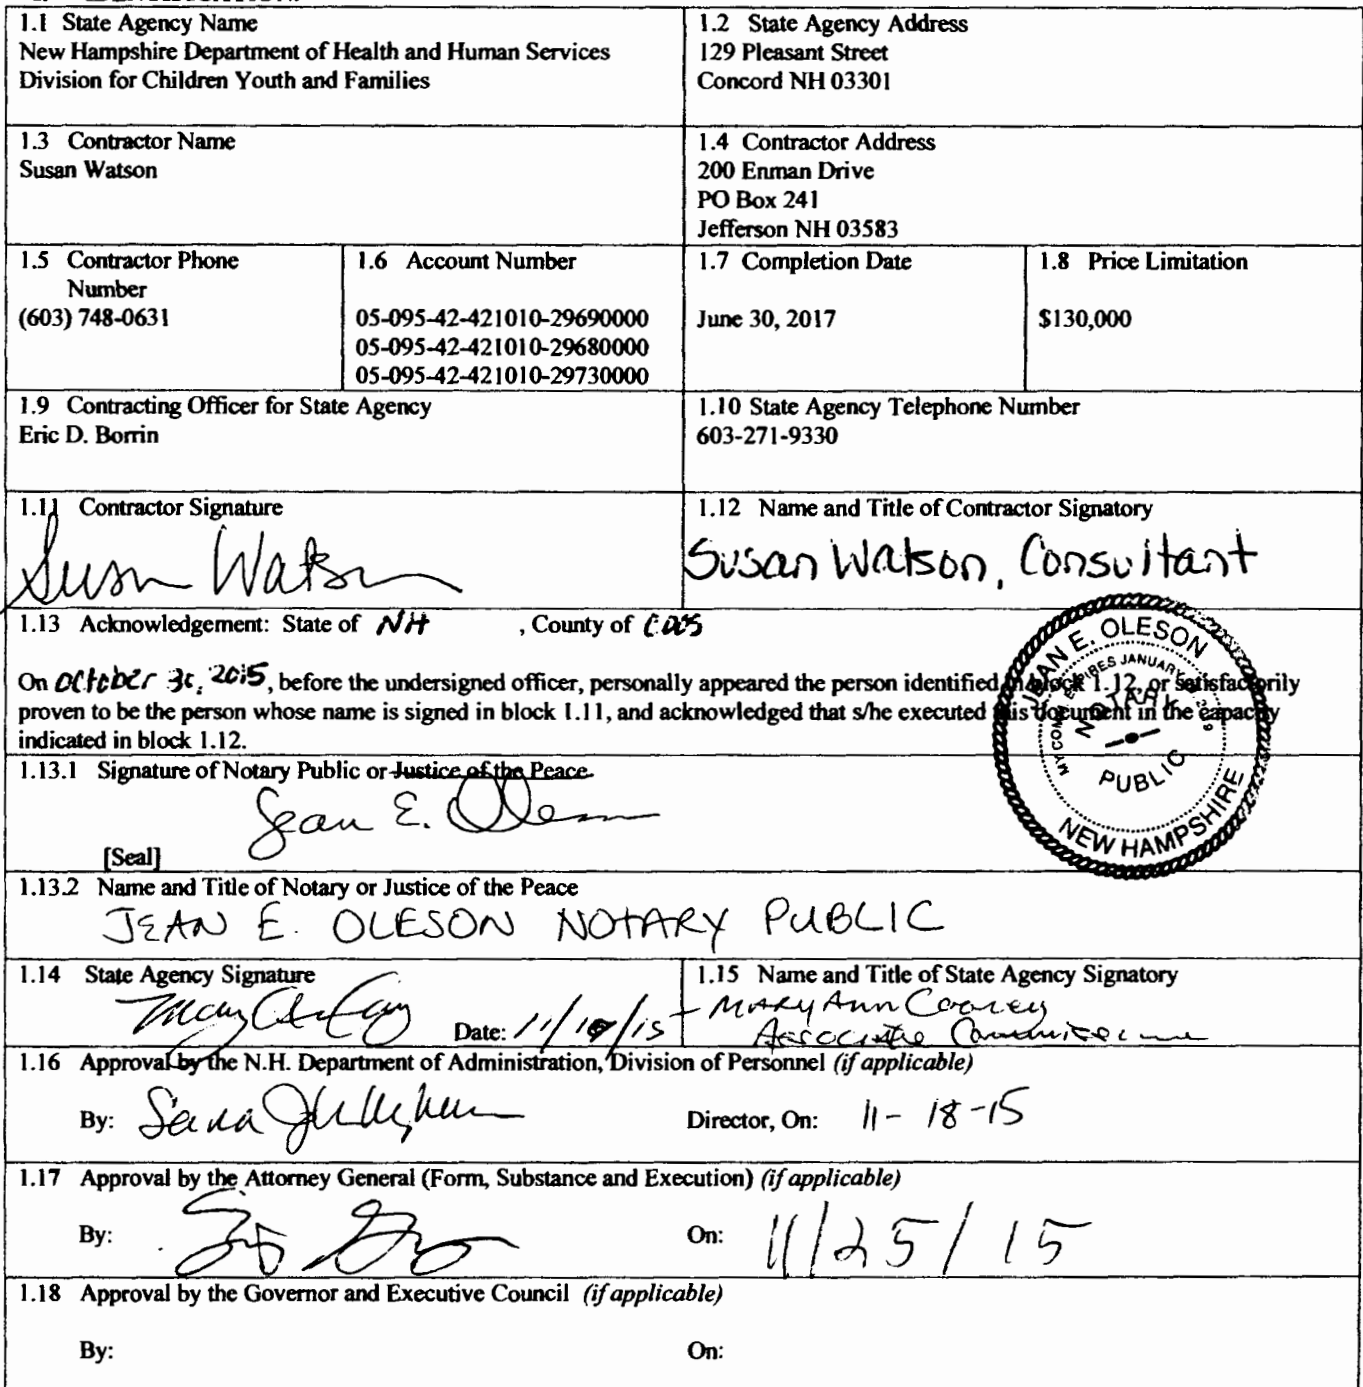 1.1 State Agency Name
New Hampshire Department of Health and Human Services
Division for Children Youth and Families
1.2 State Agency Address
129 Pleasant Street
Concord NH 03301
1.3 Contractor Name
Susan Watson
1.4 Contractor Address
200 Enman Drive
PO Box 241
Jefferson NH 03583
1.5 Contractor Phone
Number
(603) 748-0631
1.6 Account Number
05-095-42-421010-29690000
05-095-42-421010-29680000
05-095-42-421010-29730000
1.7 Completion Date
June 30, 2017
1.8 Price Limitation
$130,000
1.9 Contracting Officer for State Agency
Eric D. Borrin
1.10 State Agency Telephone Number
603-271-9330
1.11 Contractor Signature
Susan Watson
1.12 Name and Title of Contractor Signatory
Susan Watson, Consultant
1.13 Acknowledgement: State of NH , County of COOS
On October 30, 2015, before the undersigned officer, personally appeared the person identified in block 1.12, or satisfactorily
proven to be the person whose name is signed in block 1.11, and acknowledged that s/he executed this document in the capacity
indicated in block 1.12.
JEAN E. OLESON
MY COMM EXPIRES JANUARY
NOTARY
PUBLIC
NEW HAMPSHIRE
1.13.1 Signature of Notary Public or Justice of the Peace
Jean E. Oleson
[Seal]
1.13.2 Name and Title of Notary or Justice of the Peace
JEAN E. OLESON NOTARY PUBLIC
1.14 State Agency Signature
Date: 11/10/15
1.15 Name and Title of State Agency Signatory
Mary Ann Cooney
Associate Commissioner
1.16 Approval by the N.H. Department of Administration, Division of Personnel (if applicable)
By:
Director, On: 11-18-15
1.17 Approval by the Attorney General (Form, Substance and Execution) (if applicable)
By:
On: 11/25/15
1.18 Approval by the Governor and Executive Council (if applicable)
By:
On: